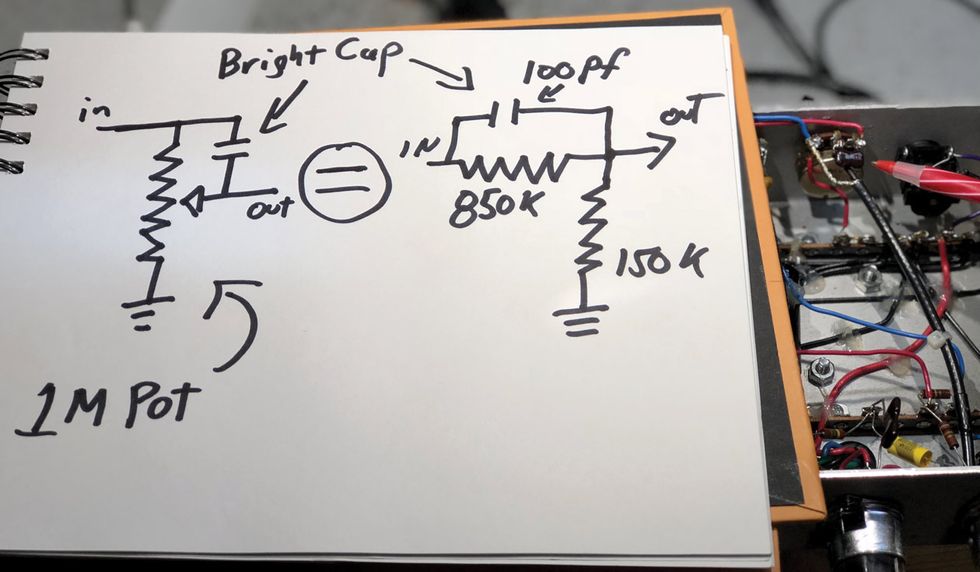 Bright Cap
in
out
1M Pot
=
100pf
IN
out
850K
150K